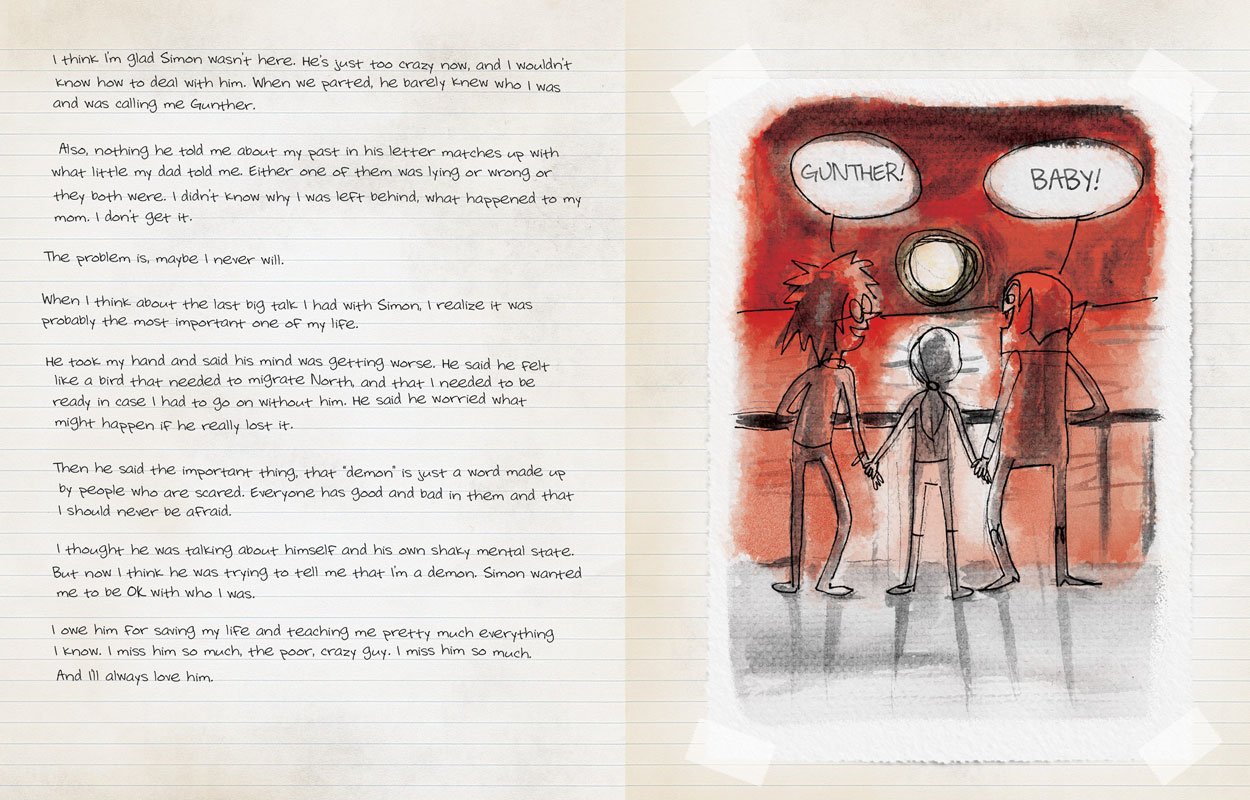 I think I'm glad Simon wasn't here. He's just too crazy now, and I wouldn't
know how to deal with him. When we parted, he barely knew who I was
and was calling me Gunther.
Also, nothing he told me about my past in his letter matches up with
what little my dad told me. Either one of them was lying or wrong or
they both were. I didn't know why I was left behind, what happened to my
mom. I don't get it.
The problem is, maybe I never will.
When I think about the last big talk I had with Simon, I realize it was
probably the most important one of my life.
He took my hand and said his mind was getting worse. He said he felt
like a bird that needed to migrate North, and that I needed to be
ready in case I had to go on without him. He said he worried what
might happen if he really lost it.
Then he said the important thing, that "demon" is just a word made up
by people who are scared. Everyone has good and bad in them and that
I should never be afraid.
I thought he was talking about himself and his own shaky mental state.
But now I think he was trying to tell me that I'm a demon. Simon wanted
me to be OK with who I was.
I owe him for saving my life and teaching me pretty much everything
I know. I miss him so much, the poor, crazy guy. I miss him so much.
And I'll always love him.
GUNTHER!
BABY!